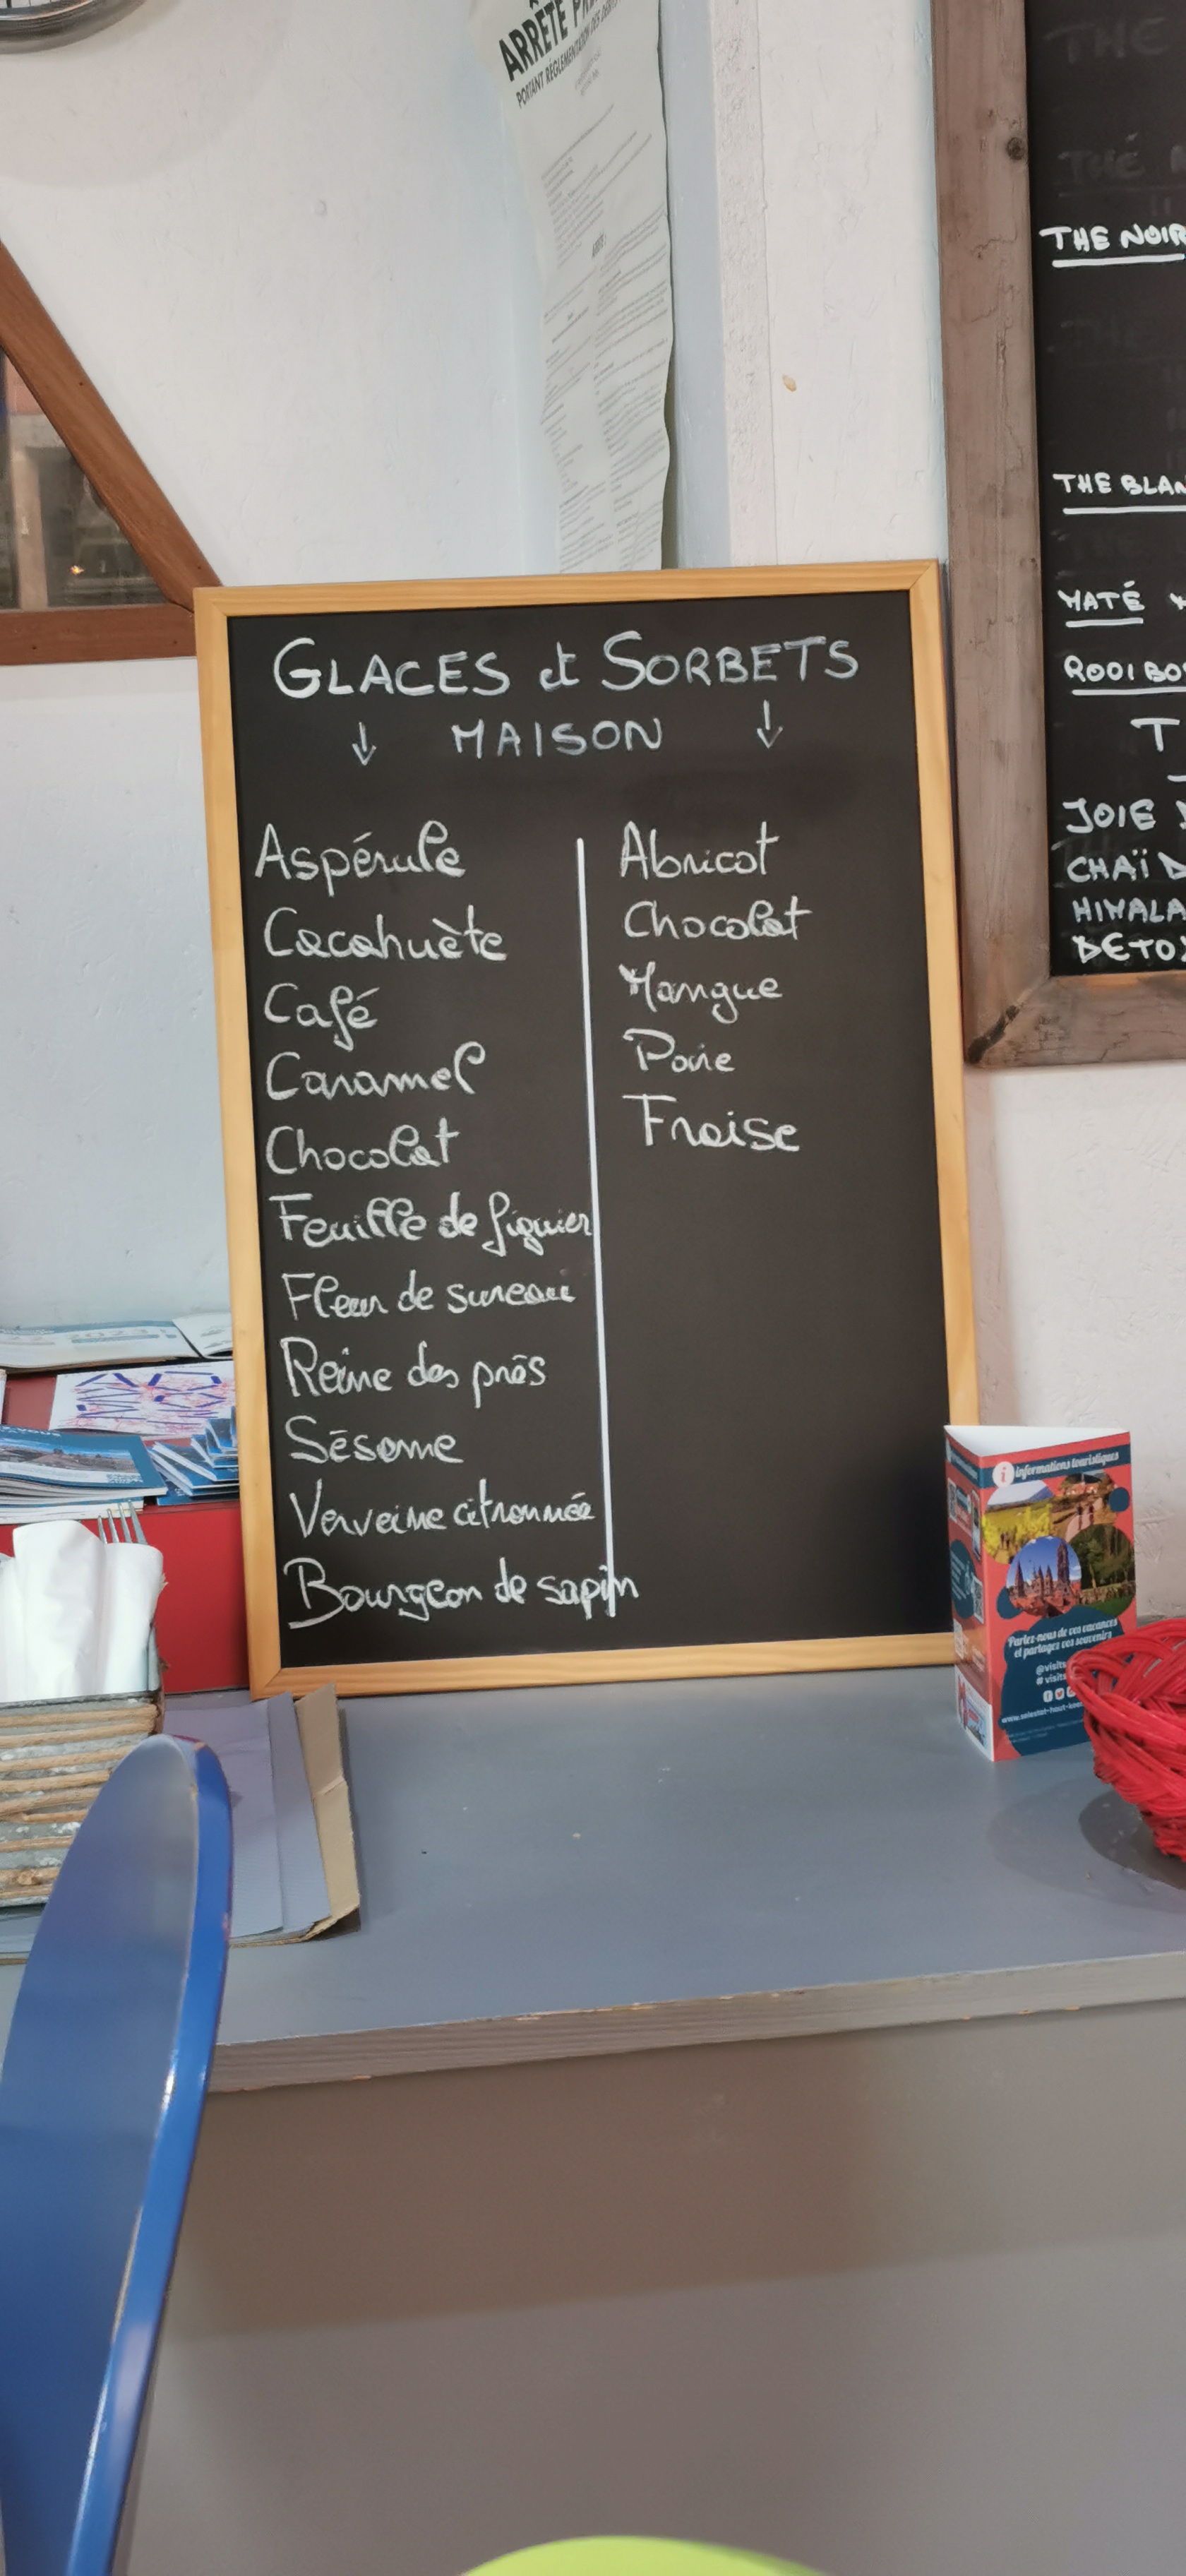 ARRÊTÉ
PORTANT RÉGLEMENTATION DES
THE NOIR
THE BLAN
MATÉ
ROOIBOS
T
JOIE
CHAÏ D
HIMALA
DETOX
GLACES et SORBETS
↓ MAISON ↓
Aspérule
Cacahuète
Café
Caramel
Chocolat
Feuille de figuier
Fleur de sureau
Reine des prés
Sésame
Verveine citronnée
Bourgeon de sapin
Abricot
Chocolat
Mangue
Poire
Fraise
i informations touristiques
Parlez-nous de vos vacances
et partagez vos souvenirs
@visits
#visits
www.selestat-haut-koe